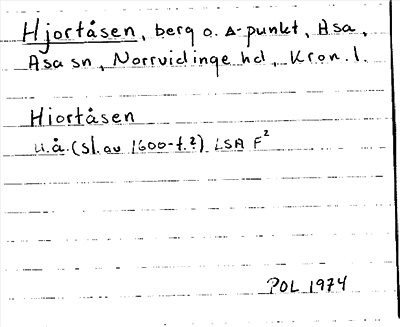 Hjortåsen, berg o. ∆-punkt, Asa,
Asa sn, Norrvidinge hd, Kron. l.
Hiortåsen
u.å. (sl. av 1600-t.?) LSA F²
POL 1974